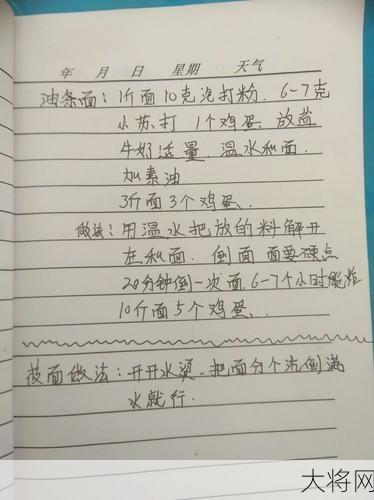 年 月 日 星期 天气
油条面：1斤面10克泡打粉.6-7克
小苏打 1个鸡蛋 放盐
牛奶适量.温水和面.
加素油
3斤面3个鸡蛋.
做法：用温水把放的料解开
在和面.倒面 面要硬点
20分钟倒一次面.6-7个小时能炸
10斤面5个鸡蛋.
面做法：开开水烫.把面分个 倒满
水就行.
大将网